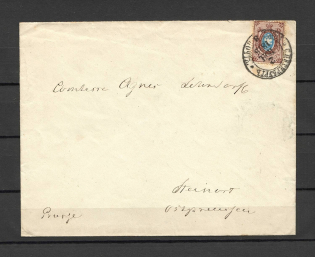 Comtesse Agnes Lehndorff
Steinort
Ostpreussen
Prusse